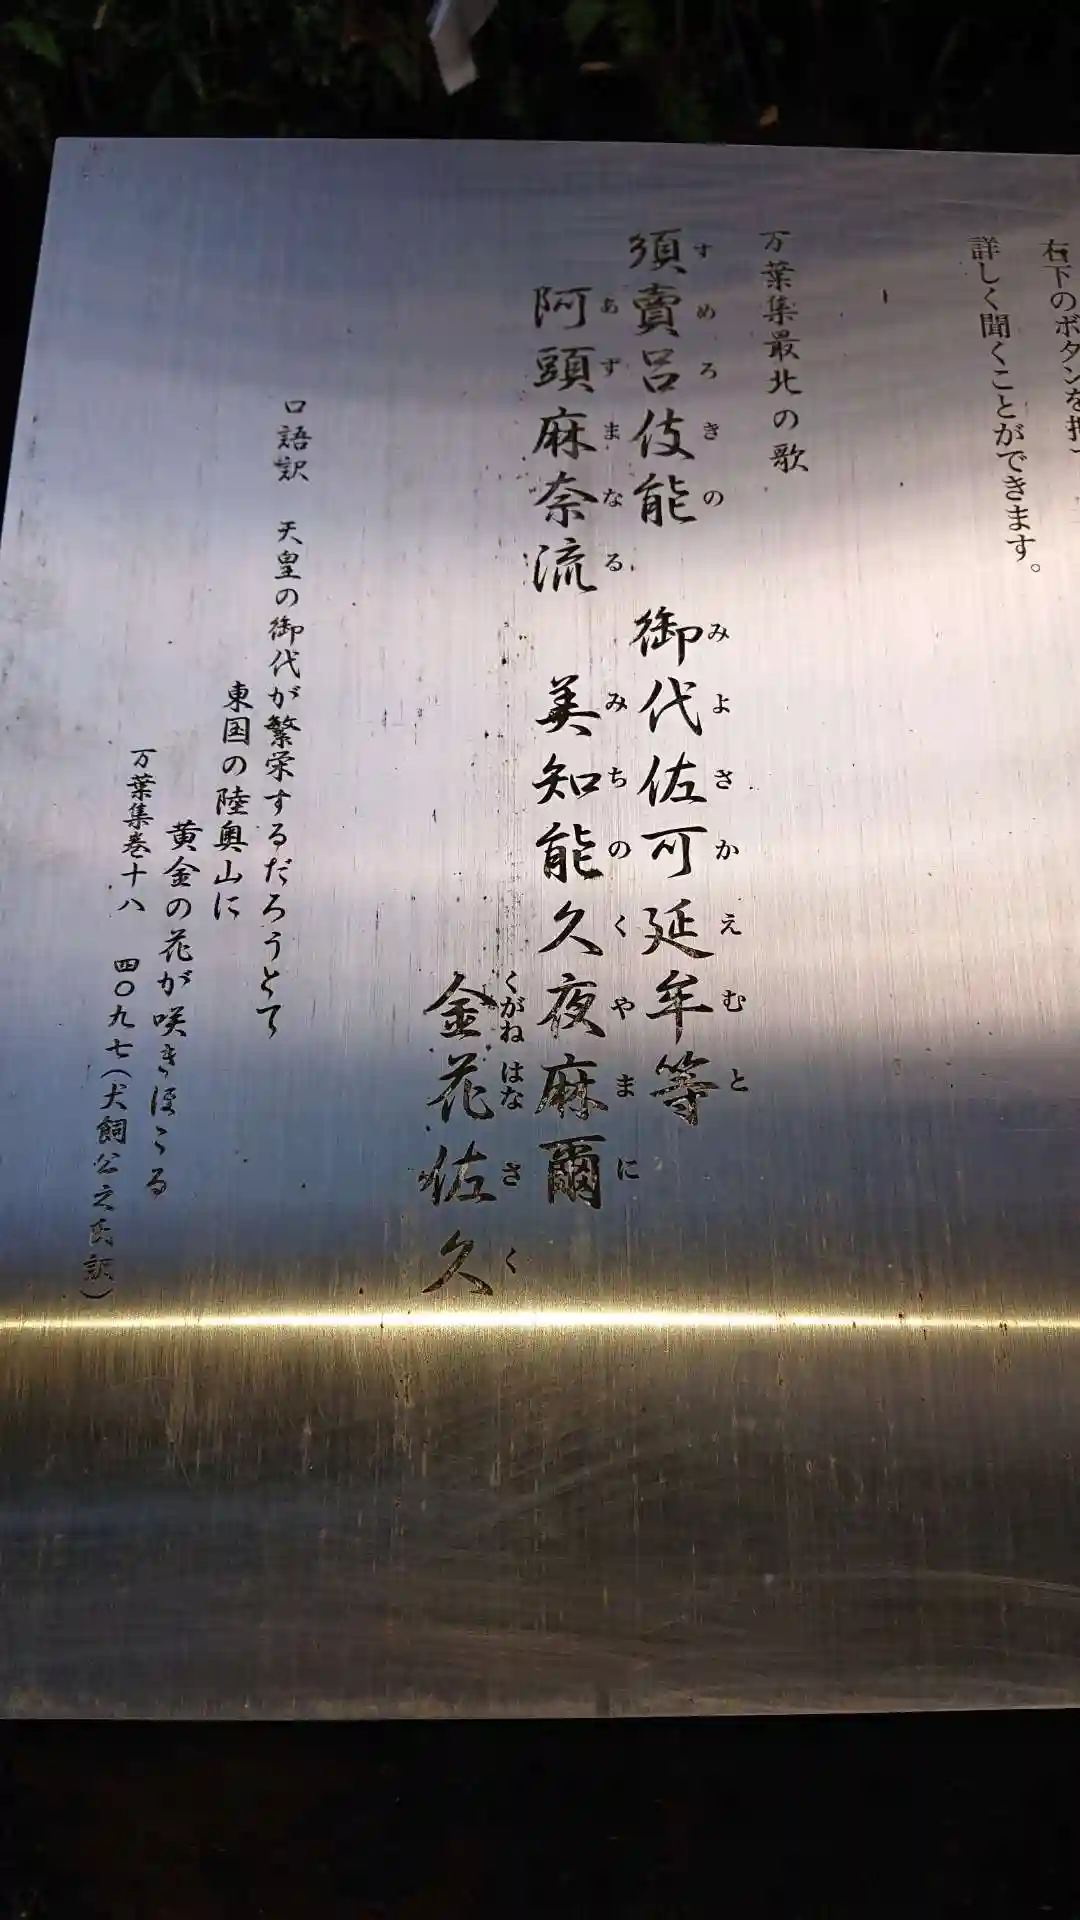 右下のボタンを押
詳しく聞くことができます。
万葉集最北の歌
須賣呂伎能 御代佐可延牟等
すめろきの みよさかえむと
阿頭麻奈流 美知能久夜麻爾
あずまなる みちのくやまに
金花佐久
くがね はな さ く
口語訳 天皇の御代が繁栄するだろうとて
東国の陸奥山に
黄金の花が咲きほこる
万葉集巻十八 四〇九七(犬飼公之氏訳)